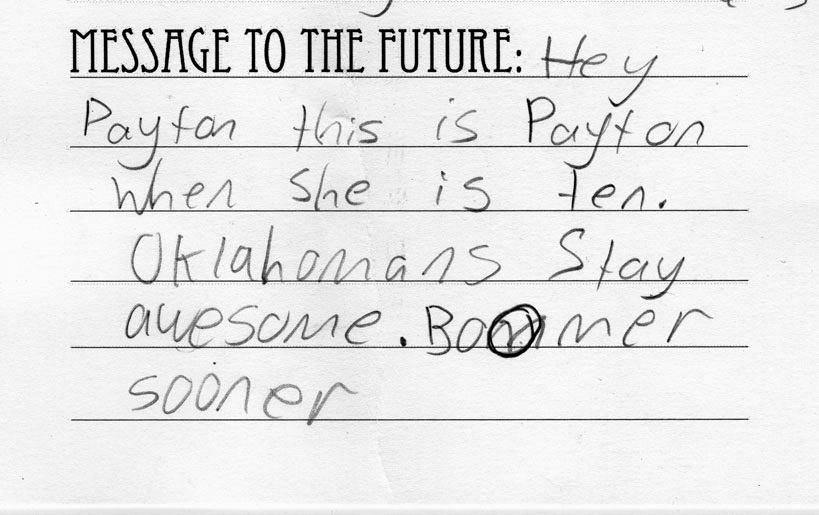 MESSAGE TO THE FUTURE: Hey
Payton this is Payton
when she is ten.
Oklahomans Stay
awesome. Boomer
sooner